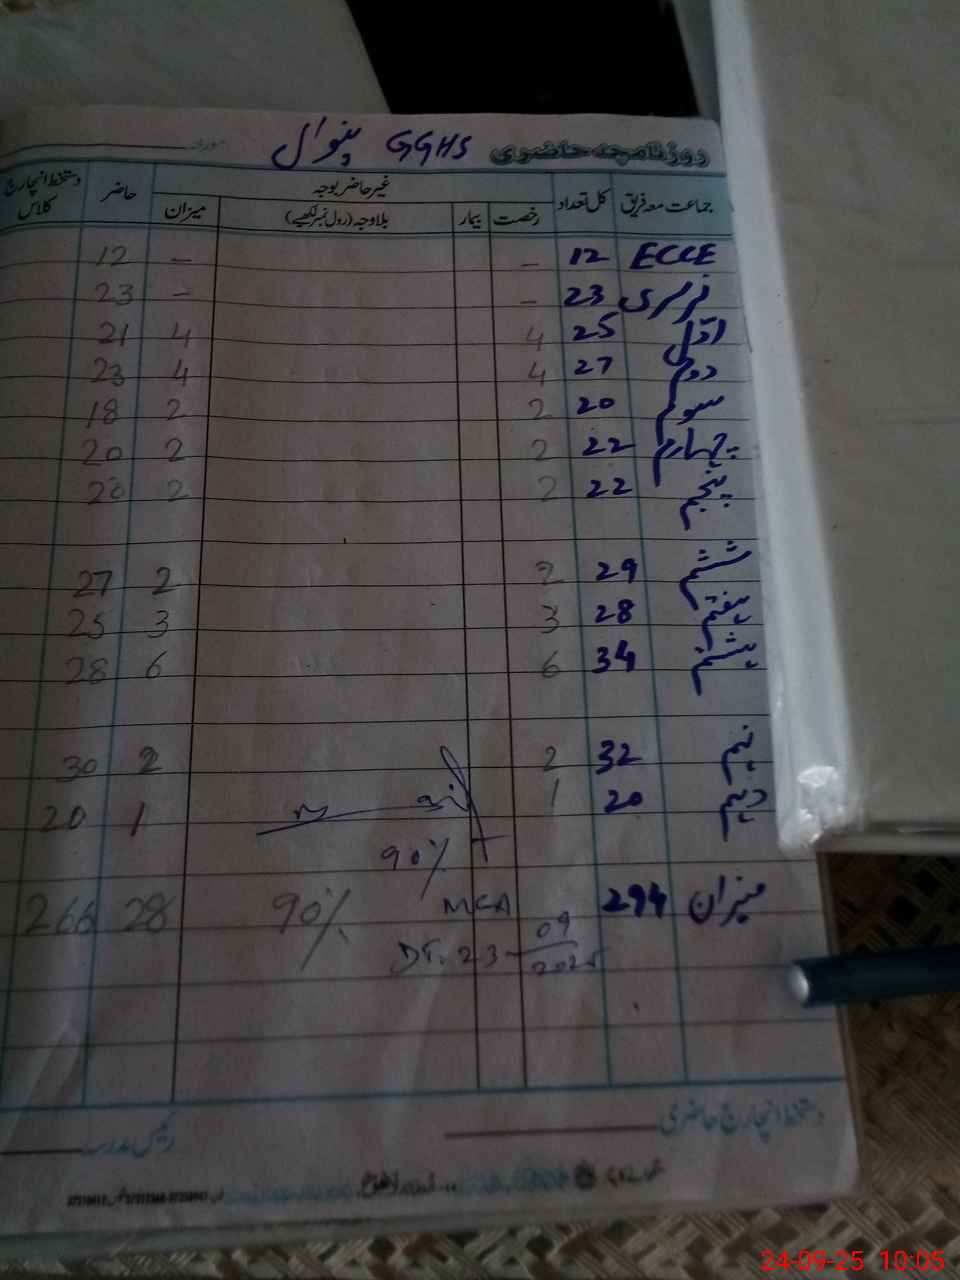 روزنامچہ حاضری GGHS پنوال مورخہ
جماعت معہ فریق کل تعداد غیر حاضر بوجہ حاضر دستخط انچارج کلاس
رخصت بیمار بلاوجہ (رول نمبر لکھیے) میزان
ECCE 12 – – 12
نرسری 23 – – 23
اول 25 4 4 21
دوم 27 4 4 23
سوم 20 2 2 18
چہارم 22 2 2 20
پنجم 22 2 2 20
ششم 29 2 2 27
ہفتم 28 3 3 25
ہشتم 34 6 6 28
نہم 32 2 2 30
دہم 20 1 1 20
90%
میزان 294 MEA 90% 28 266
DT. 23-09-2025
دستخط انچارج حاضری رئیس مدرسہ
24-09-25 10:05